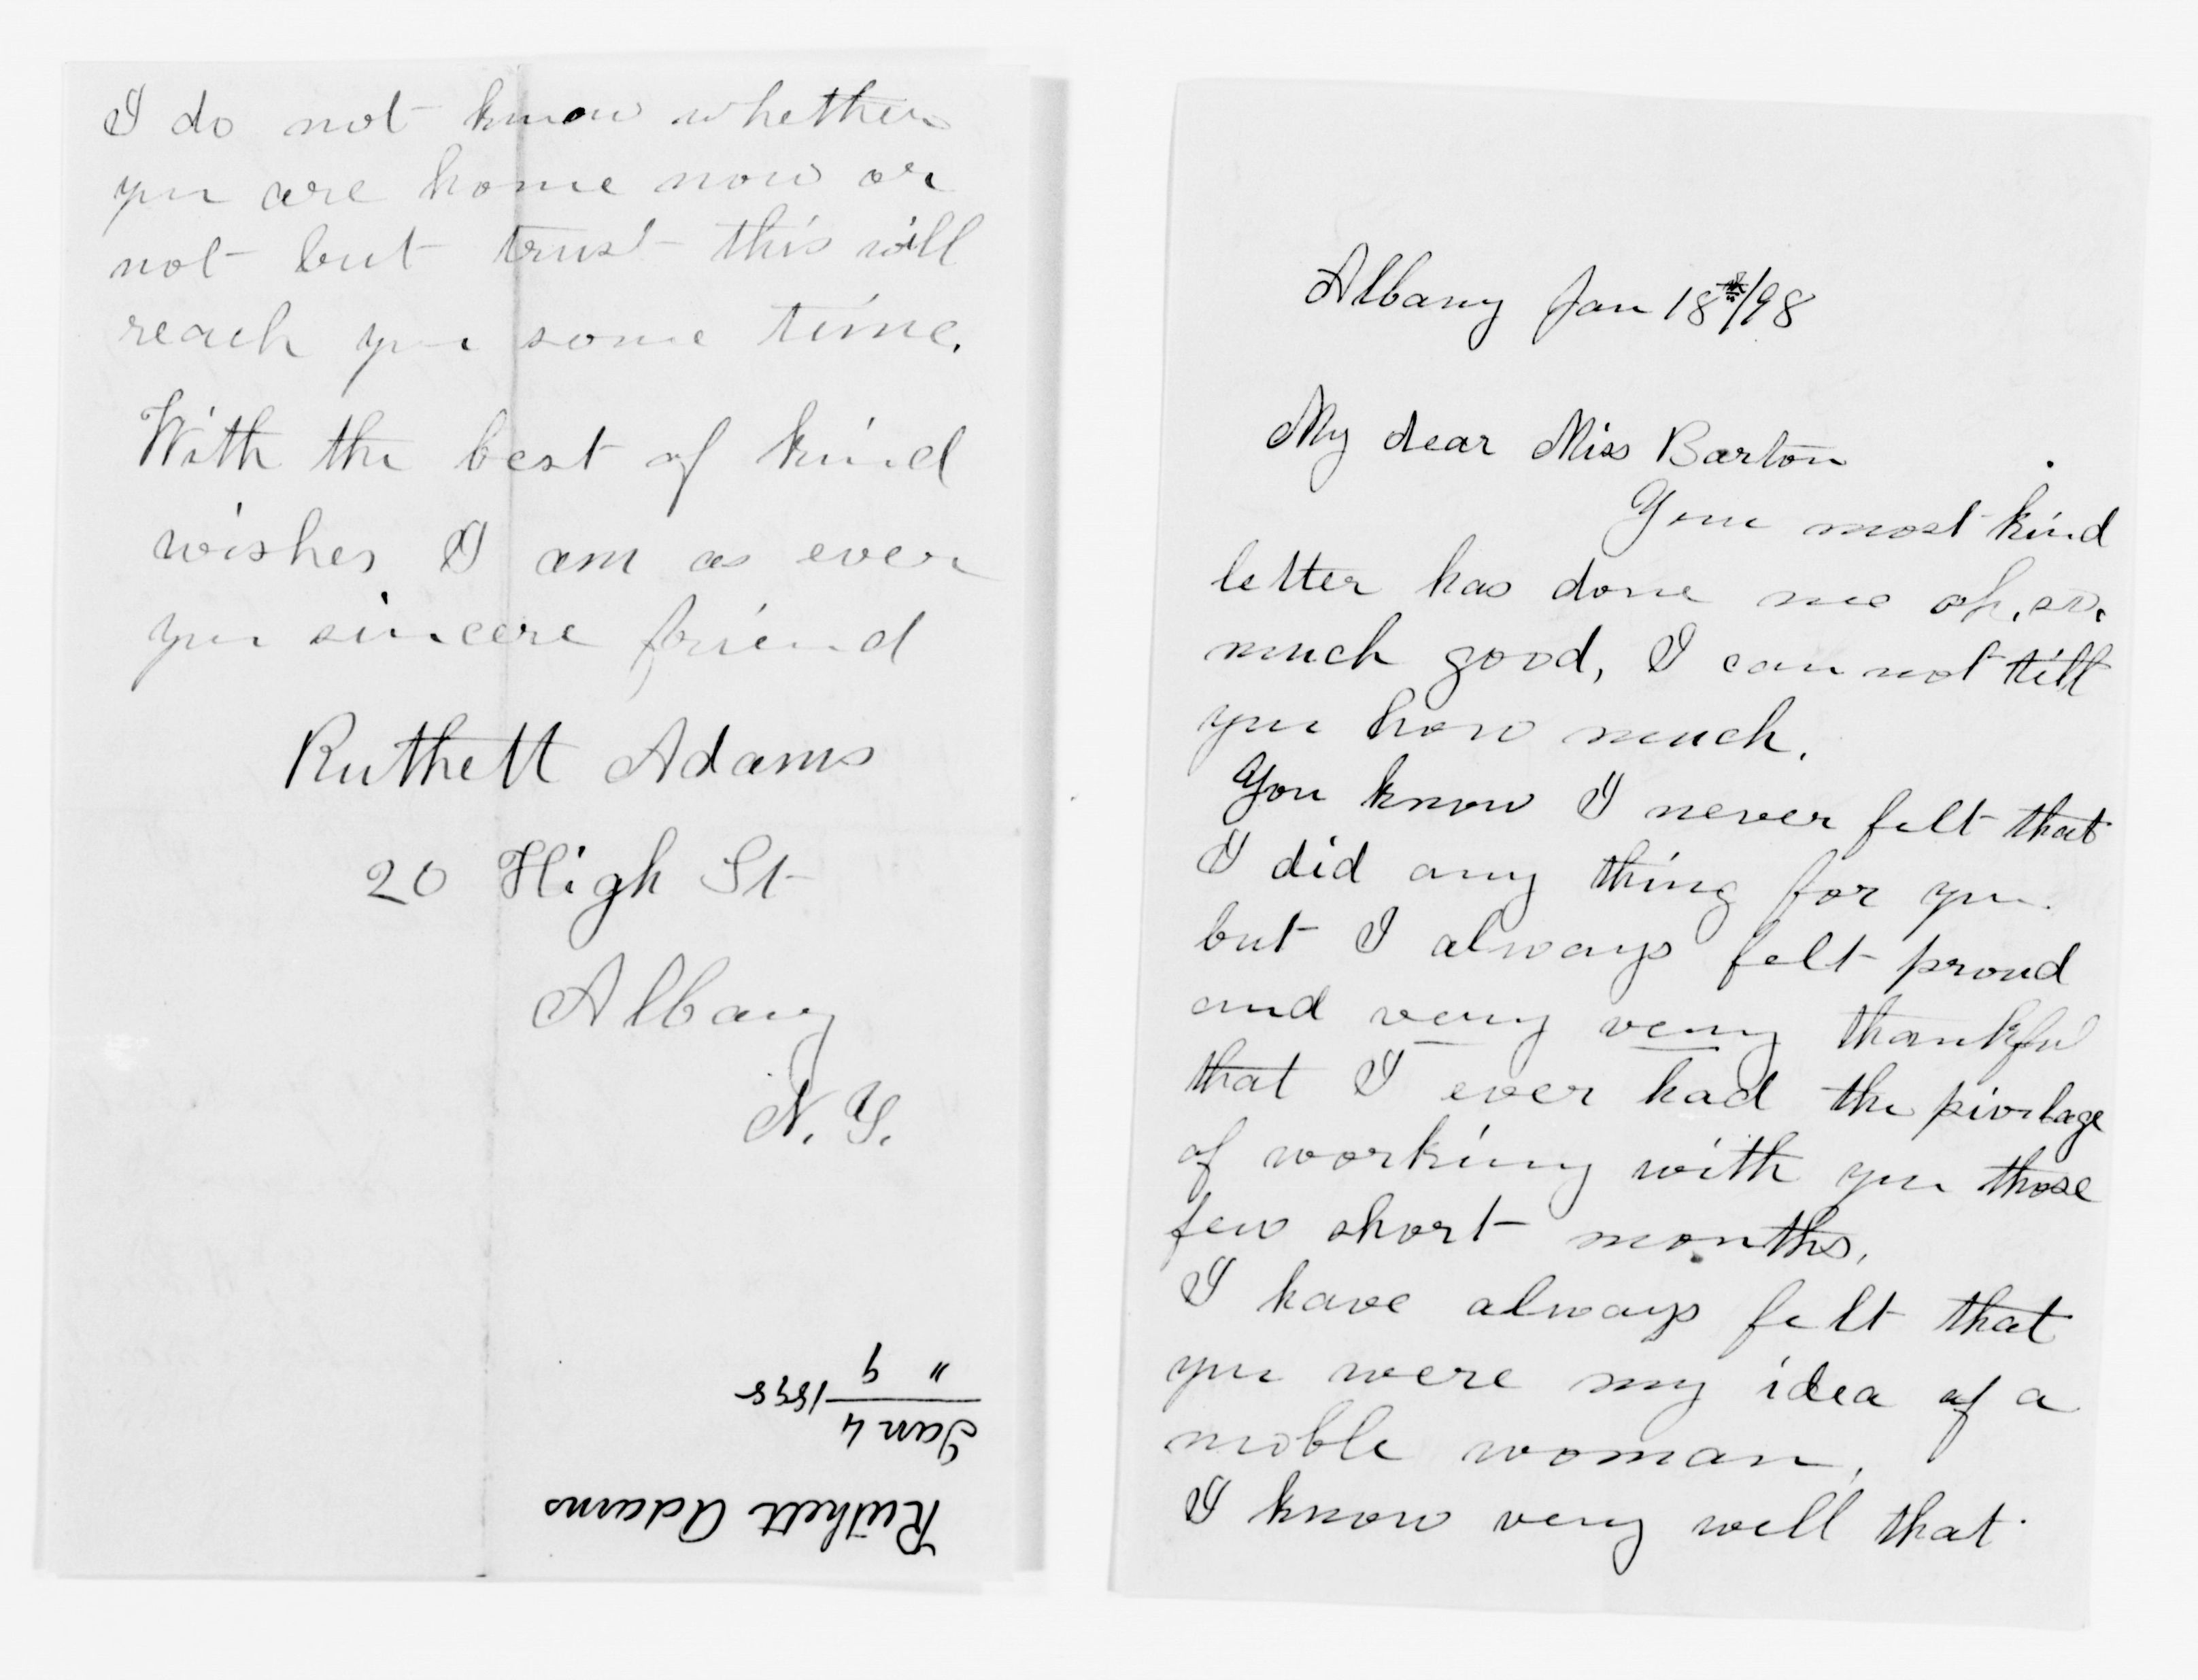 I do not know whether
you are home now or
not but trust this will
reach you some time.
With the best of kind
wishes I am as ever
your sincere friend
Ruthett Adams
20 High St
Albany
N. Y.
Ruthett Adams
Jan 4
" 9 1898
Albany Jan 18th/98
My dear Miss Barton
Your most kind
letter has done me oh, so,
much good, I can not tell
you how much.
You know I never felt that
I did any thing for you.
but I always felt proud
and very very thankful
that I ever had the pivelage
of working with you those
few short months,
I have always felt that
you were my idea of a
noble woman,
I know very well that